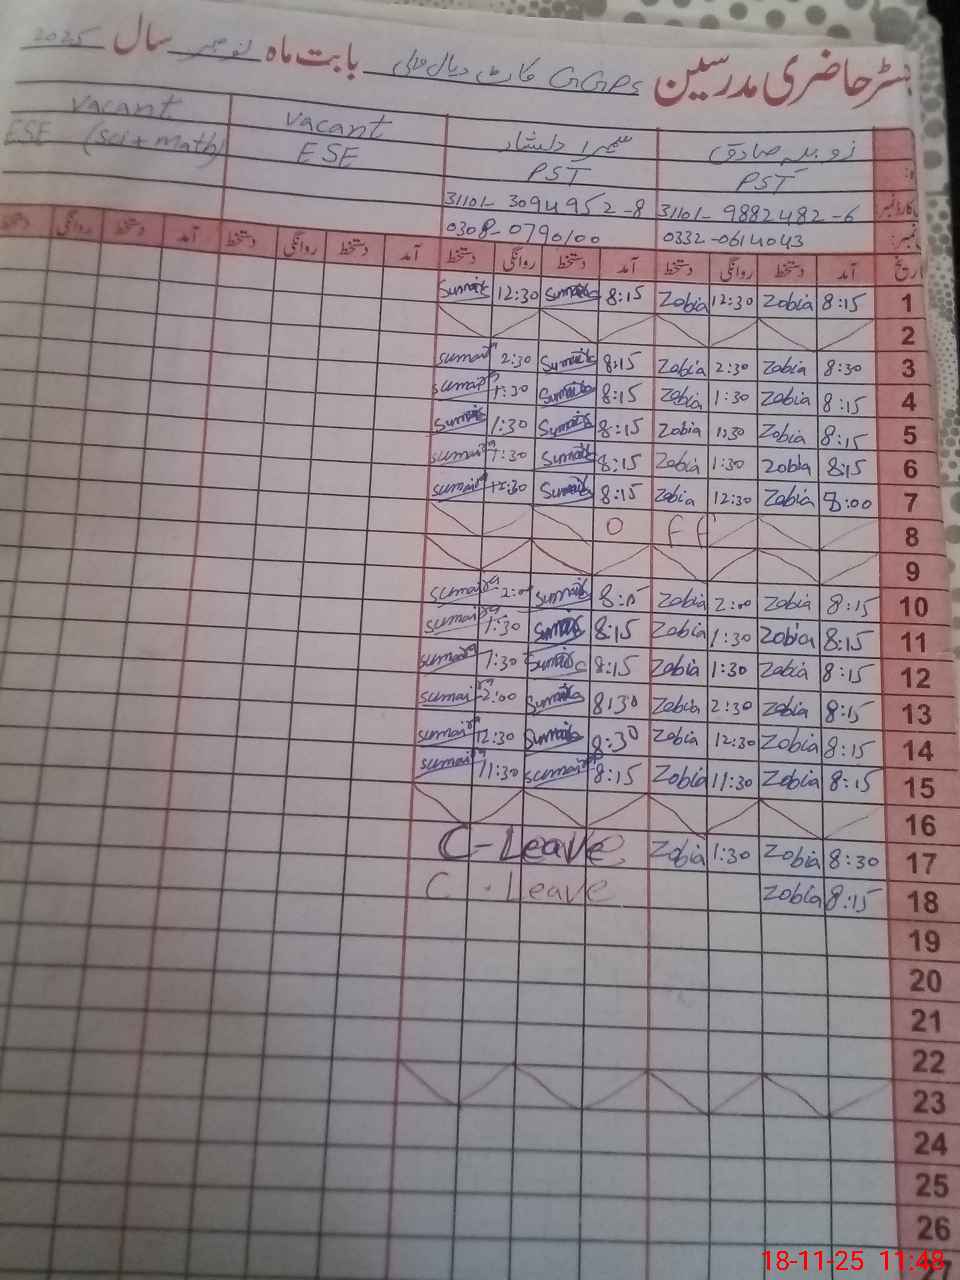 رجسٹر حاضری مدرسین GGPS بابت ماہ نومبر سال 2025
زوبیہ صادق سمیرا دلشاد vacant vacant
PST PST ESE ESE (sci + math)
31101- 9882482-6 31101- 3094952-8
0332-0614043 0308-0790100
تاریخ آمد دستخط روانگی دستخط آمد دستخط روانگی دستخط آمد دستخط روانگی دستخط آمد دستخط روانگی دستخط
1 8:15 Zobia 12:30 Zobia 8:15 Sumaira 12:30 Sumaira
2
3 8:30 Zobia 2:30 Zobia 8:15 Sumaira 2:30 Sumaira
4 8:15 Zobia 1:30 Zobia 8:15 Sumaira 1:30 Sumaira
5 8:15 Zobia 1:30 Zobia 8:15 Sumaira 1:30 Sumaira
6 8:15 Zobia 1:30 Zobia 8:15 Sumaira 1:30 Sumaira
7 8:00 Zobia 12:30 Zobia 8:15 Sumaira 12:30 Sumaira
8 OFF
9
10 8:15 Zobia 2:00 Zobia 8:15 Sumaira 2:00 Sumaira
11 8:15 Zobia 1:30 Zobia 8:15 Sumaira 1:30 Sumaira
12 8:15 Zobia 1:30 Zobia 8:15 Sumaira 1:30 Sumaira
13 8:15 Zobia 2:30 Zobia 8:30 Sumaira 2:00 Sumaira
14 8:15 Zobia 12:30 Zobia 8:30 Sumaira 12:30 Sumaira
15 8:15 Zobia 11:30 Zobia 8:15 Sumaira 11:30 Sumaira
16
17 8:30 Zobia 1:30 Zobia C-Leave
18 8:15 Zobia C-Leave
19
20
21
22
23
24
25
26
18-11-25 11:48